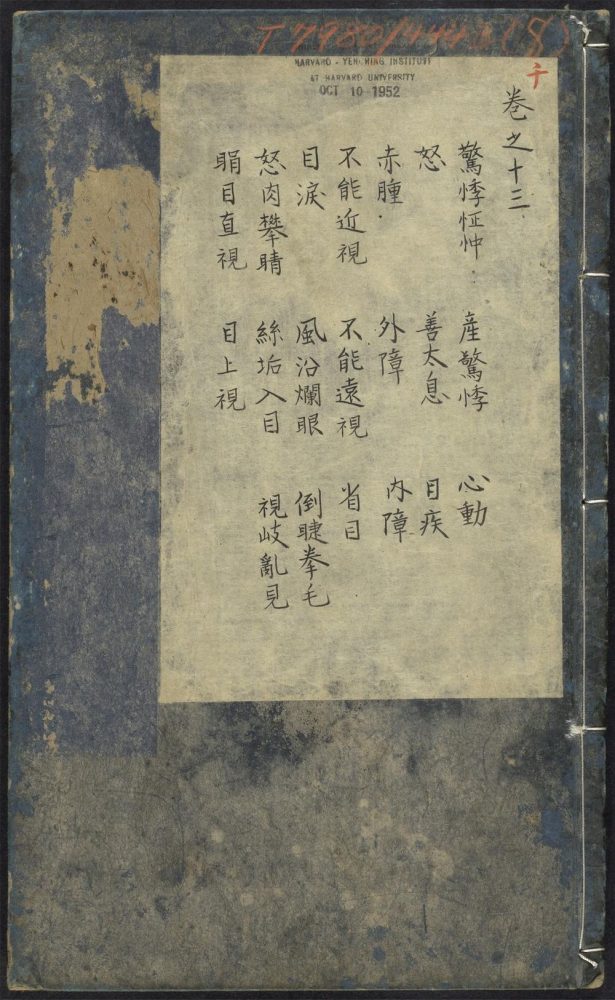 T 7980/4443 (8)
HARVARD - YENCHING INSTITUTE
AT HARVARD UNIVERSITY
OCT 10 1952
千
卷之十三
驚悸怔忡 産驚悸 心動
怒 善太息 目疾
赤腫 外障 內障
不能近視 不能遠視 省目
目淚 風沿爛眼 倒睫拳毛
怒肉攀睛 絲垢入目 視岐亂見
睊目直視 目上視